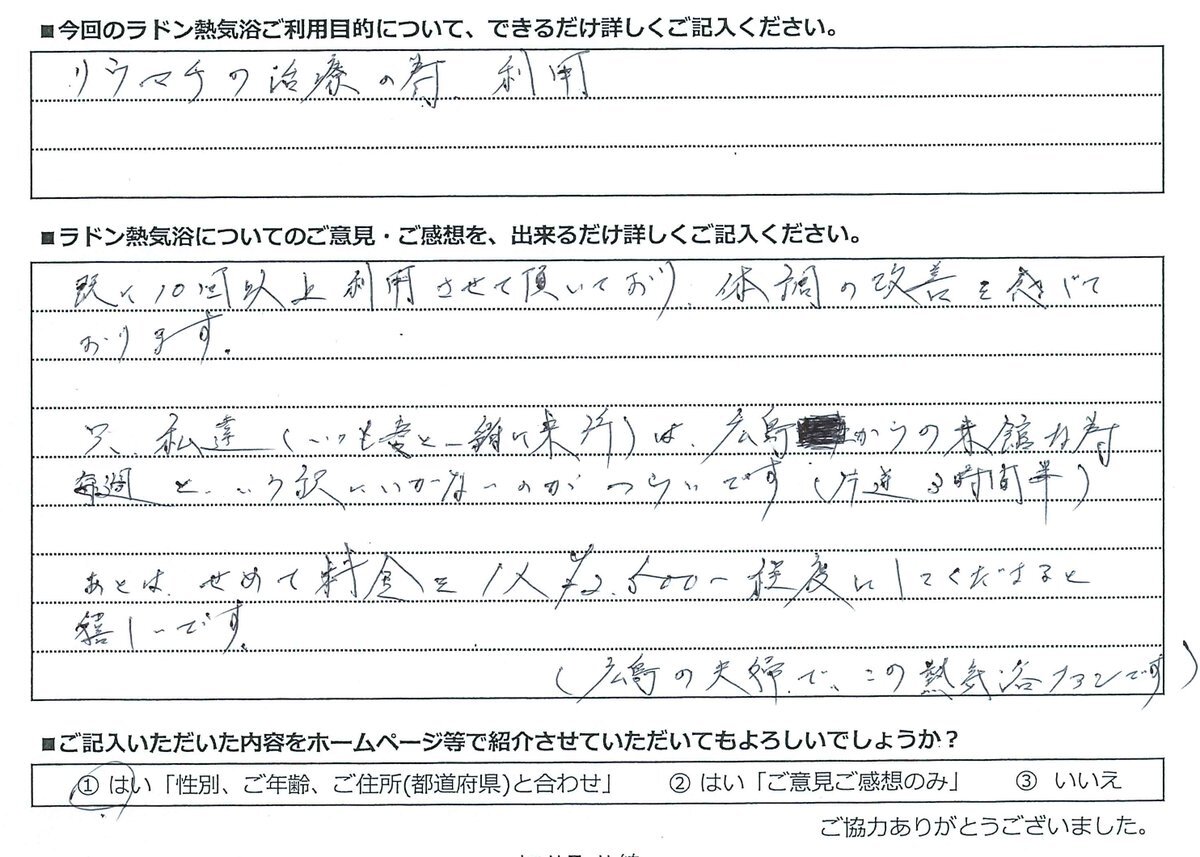 ■今回のラドン熱気浴ご利用目的について、できるだけ詳しくご記入ください。
リウマチの治療の為、利用
■ラドン熱気浴についてのご意見・ご感想を、出来るだけ詳しくご記入ください。
既に10回以上利用させて頂いており、体調の改善を感じて
おります。
只、私達(いつも妻と一緒に来所)は、広島からの来館な為
毎週と、いう訳にいかないのがつらいです(片道3時間半)
あとは、せめて料金を1人¥2.500-程度にしてくださると
嬉しいです。
(広島の夫婦で、この熱気浴ファンです)
■ご記入いただいた内容をホームページ等で紹介させていただいてもよろしいでしょうか？
① はい「性別、ご年齢、ご住所(都道府県)と合わせ」 ② はい「ご意見ご感想のみ」 ③ いいえ
ご協力ありがとうございました。